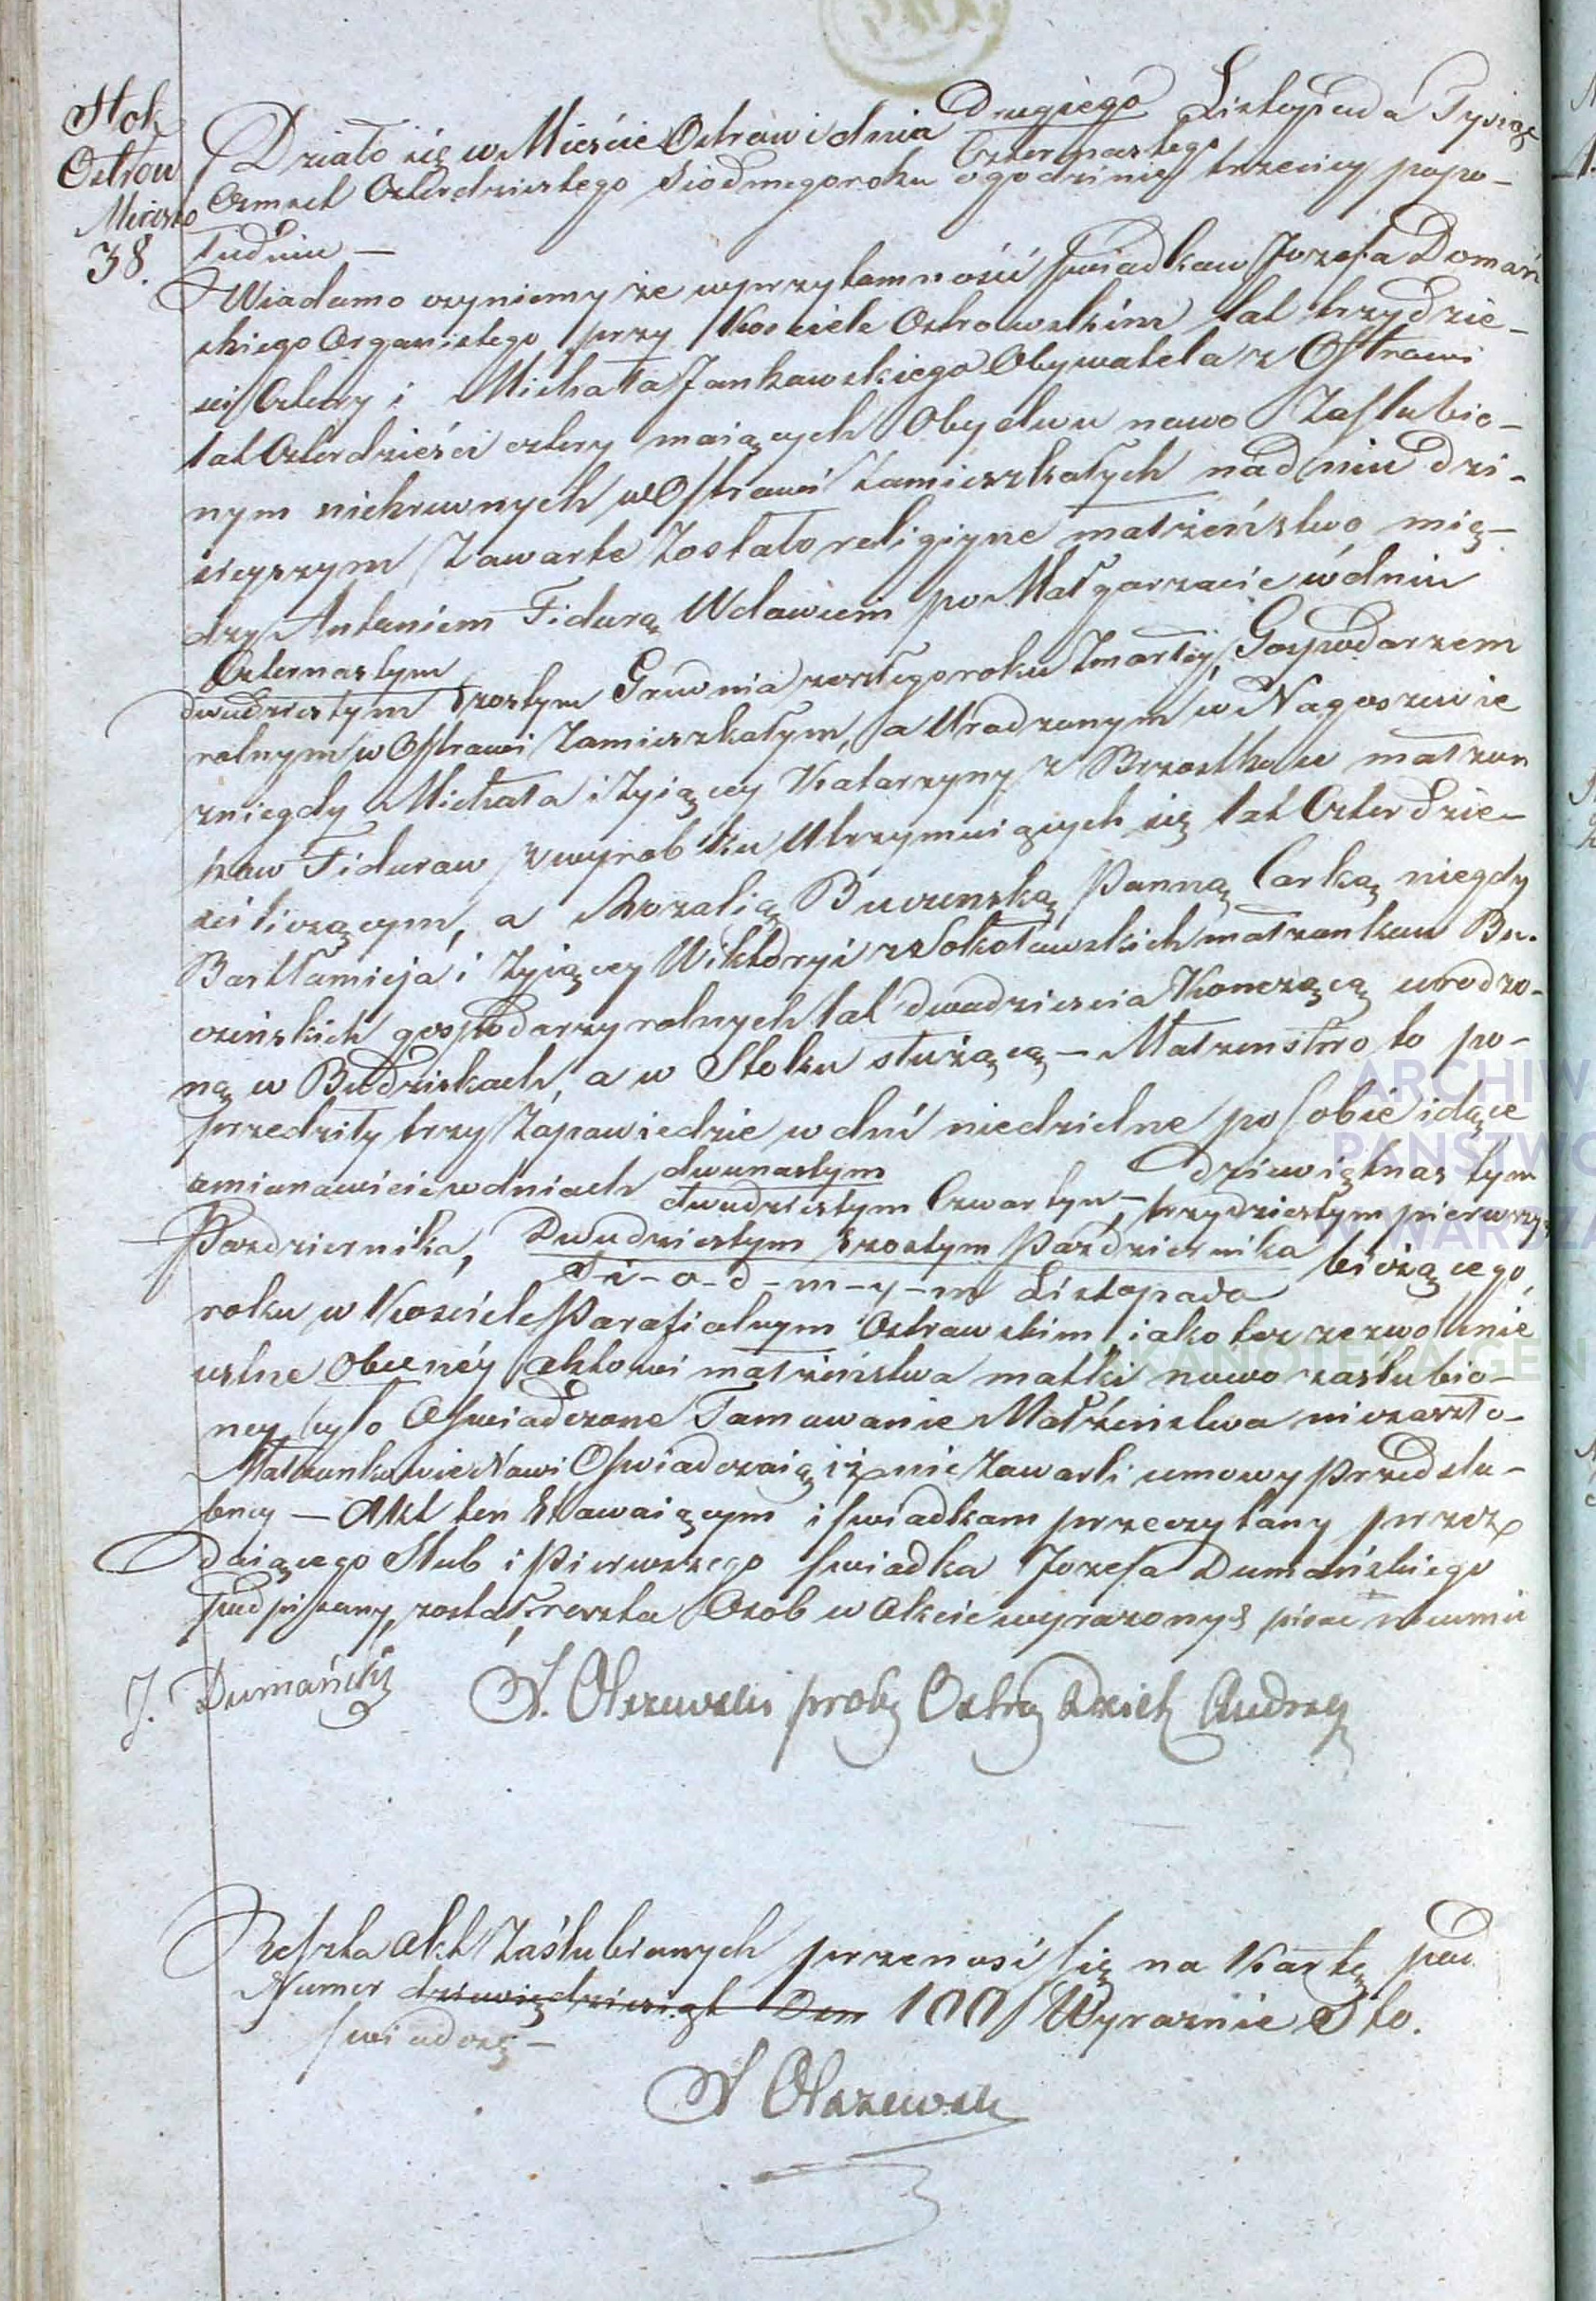 Stok
Ostrow
Miesto
38.
Działo się w Mieście Ostrowi dnia Drugiego Listopada Tysiąc
Czternastego
Osmset Czterdziestego Siodmego roku o godzinie trzeciey popo-
łudniu —
Wiadomo czyniemy że wprzytomności Swiadkow Jozefa Domań
skiego Organistego przy Kosciele Ostrowskim lat trzydzie-
sci Cztery i Michała Jankowskiego Obywatela z Ostrowi
lat Czterdzieści cztery maiących Obydwu nowo Zaslubio-
nym niekrewnych w Ostrowi Zamieszkałych na dniu dzi-
sieyszym Zawarte Zostało religiyne matżeństwo mię-
dzy Antoniem Fidurą Wdowcem po Małgorzacie w dniu
Czternastym
dwudziestym Szostym Grudnia zeszłego roku Zmarłey, Gospodarzem
rolnym w Ostrowi Zamieszkałym, a Urodzonym w Nagoszewie
z niegdy Michała i Zyiącey Katarzyny z Brzostkow małzon
kow Fidurow z wyrobku Utrzymuiących się lat Czterdzie-
sci liczącym, a Rozalią Buczenską Panną Corką niegdy
Bartłomieja i Zyiącey Wiktoryi z Sokołowskich małzonkow Bu-
czińskich gospodarzy rolnych lat dwadziescia Konczącą urodzo-
ną w Budziskach, a w Stoku służącą — Małzenstwo to po-
przedziły trzy Zapowiedzie w dni niedzielne po sobie idące
amianowicie w dniach dwunastym dziewiętnastym
dwudziestym Czwartym, trzydziestym pierwszym
Pazdziernika, Dwudziestym Szostym Pażdziernika bieżącego
S-i-o-d-m-y-m Listopada
roku w Kosciele Parafialnym Ostrowskim iako tez zezwolenie
ustne Obecnéy aktowi małżeństwa matki nowo zaslubio-
ney było Oswiadczone Tamowanie Małżeństwa nie zaszło-
Małzonkowie Nowi Oswiadczaią iż nie Zawarli umowy Przedslu-
bney — Akt ten Stawaiącym i swiadkom przeczytany przez
Daiącego Slub i Pierwszego swiadka Jozefa Dumańskiego
Podpisany, został, reszta Osob w Akcie wyrazonych pisac nieumie
J. Dumański X. Olszewski prob Ostro Dziek Andrz
Reszta akt Zaślubionych przenosi się na Kartę pod
Numer dziewiędziesiąt Dem 100 Wyraznie Sto.
swiadczę —
X Olszewski
ARCHIW
PAŃSTWO
W WARSZA
SKANOTEKA GEN